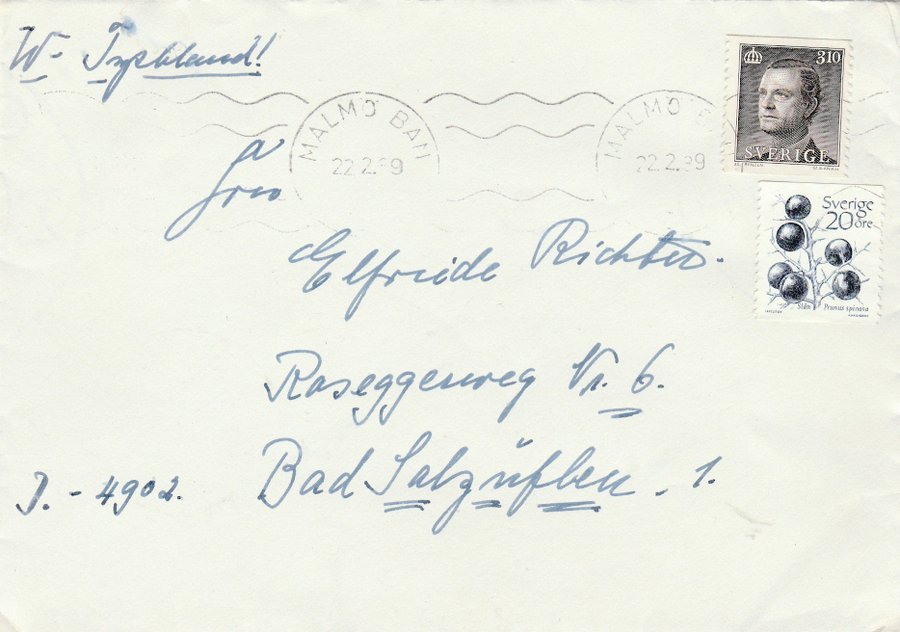 W- Tyskland!
310
SVERIGE
MALMÖ BAN
22.2.89
MALMÖ B
22.2.89
Sverige
20 öre
Slån Prunus spinosa
Frau
Elfriede Richter.
Roseggerweg Nr. 6.
D. - 4902. Bad Salzuflen. 1.